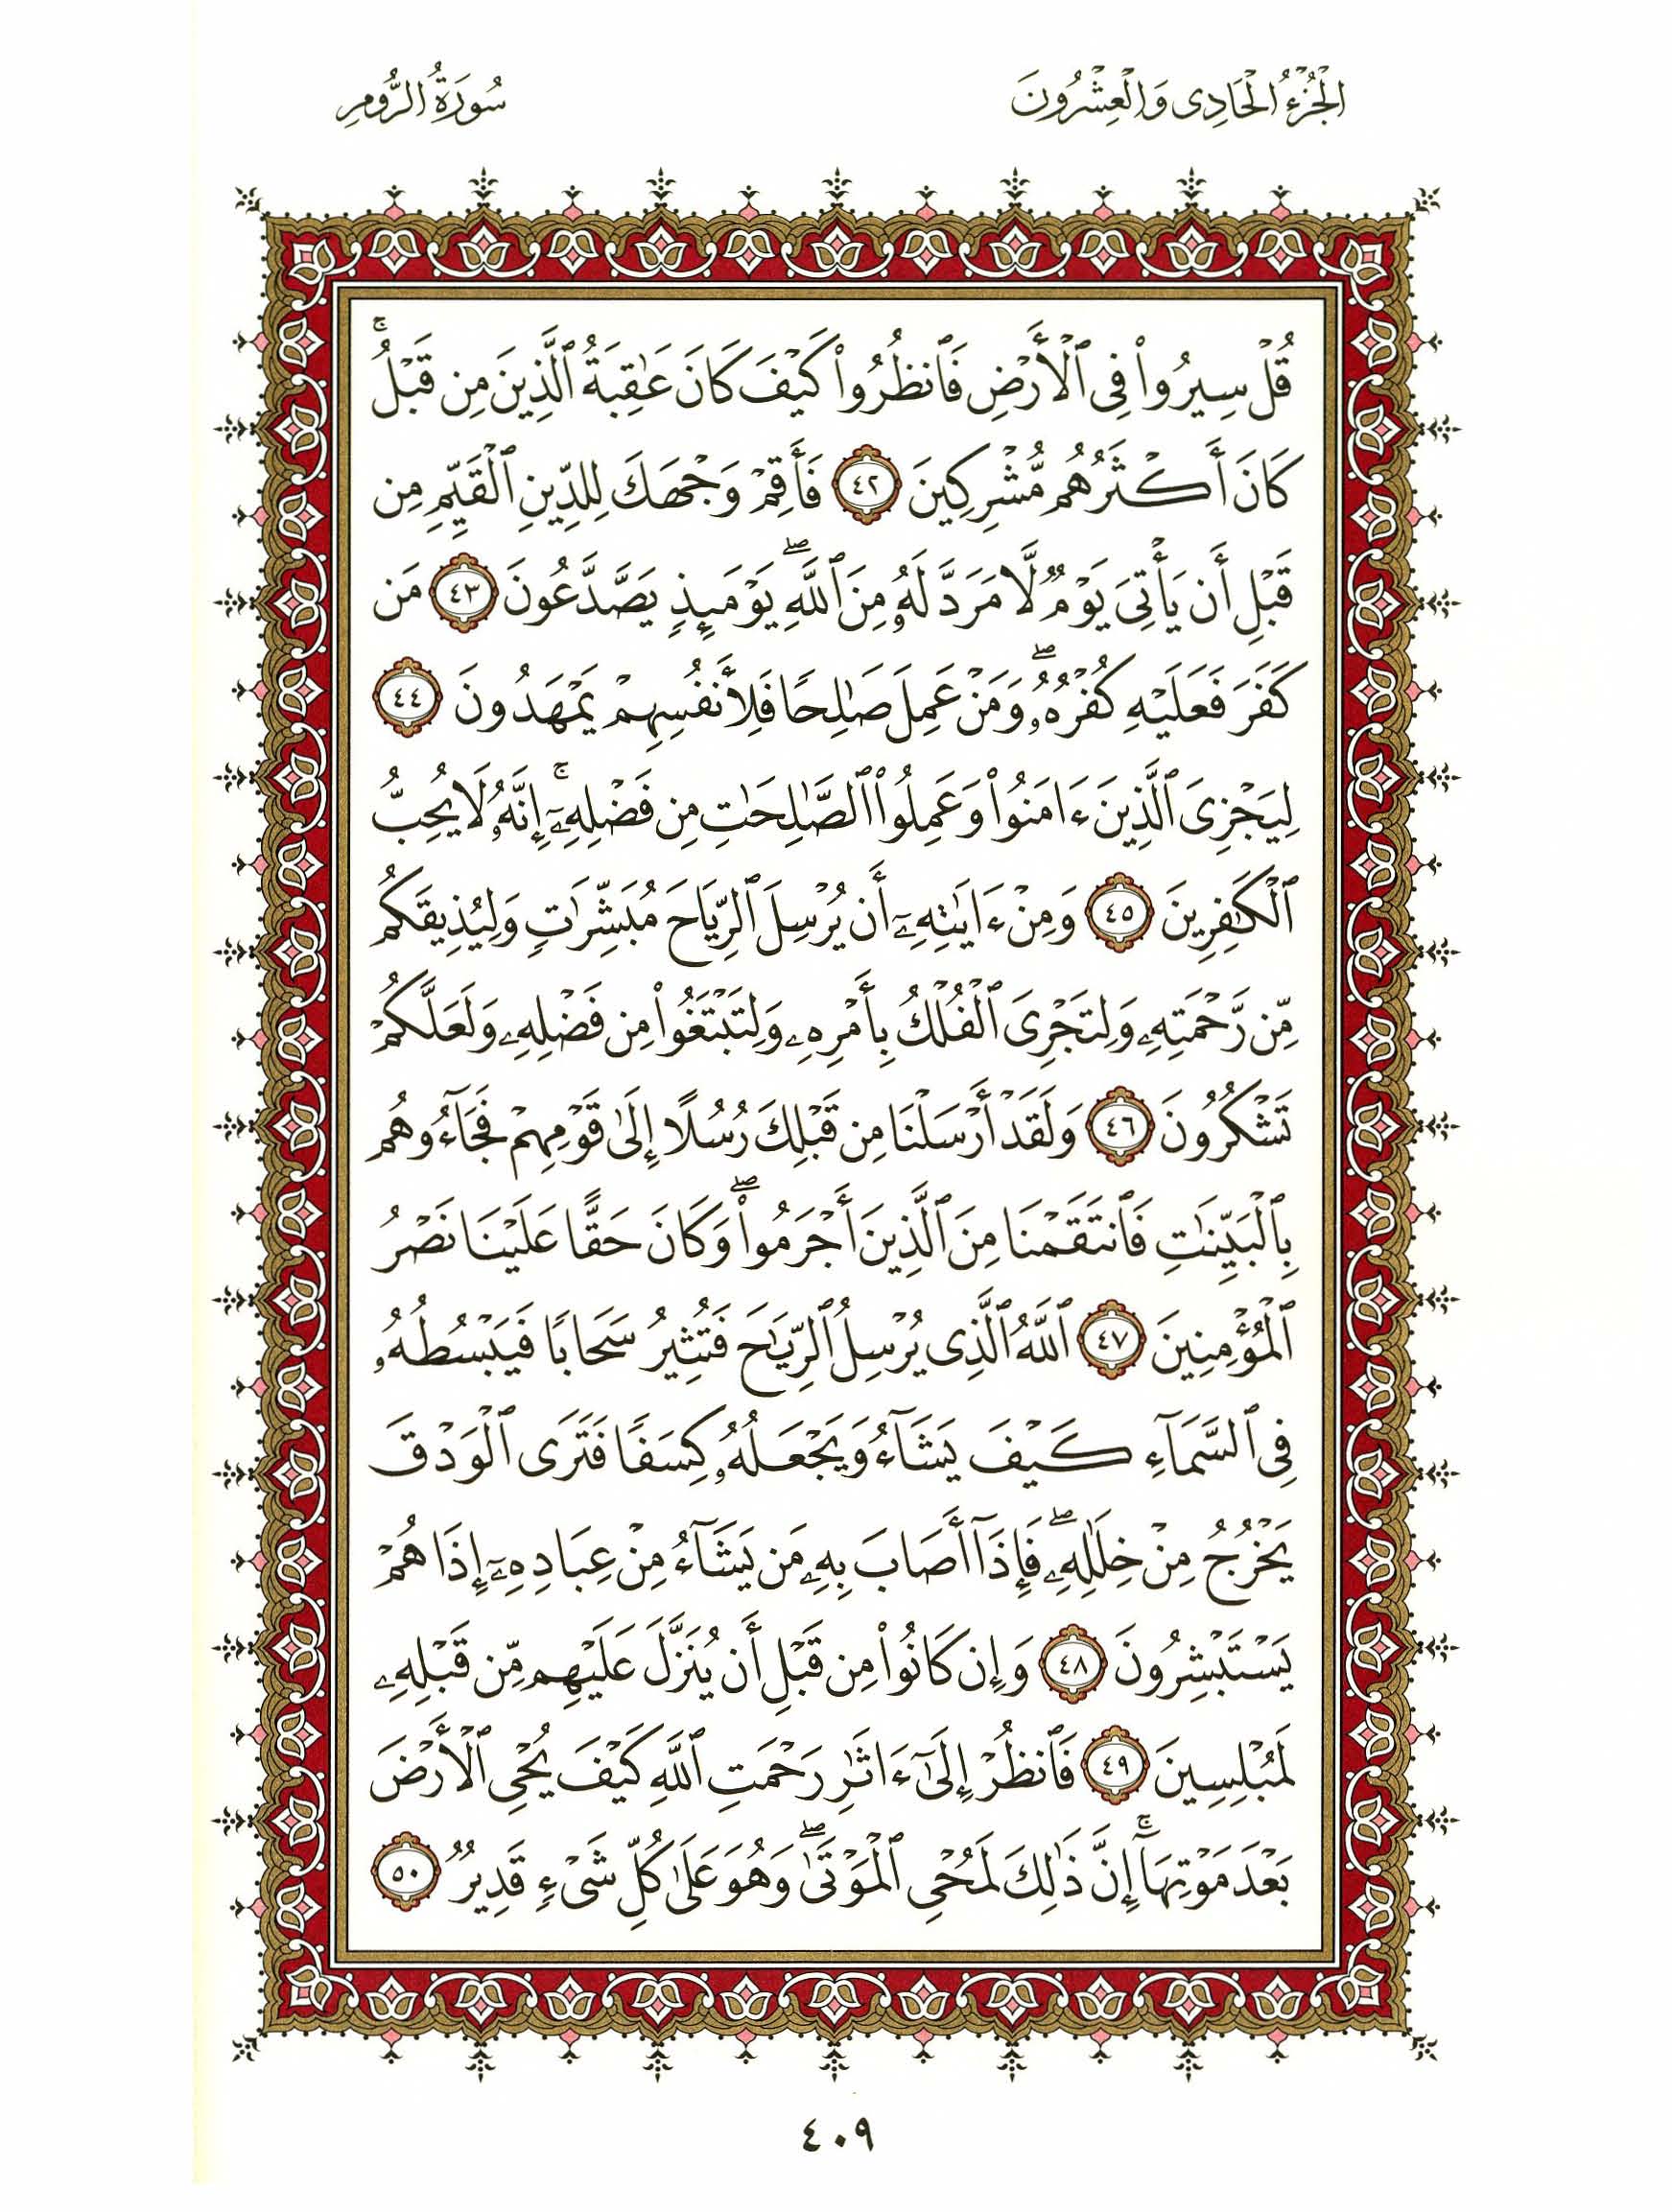 الْجُزْءُ الْحَادِى وَالْعِشْرُونَ
سُورَةُ الرُّومِ
قُلْ سِيرُوا۟ فِى ٱلْأَرْضِ فَٱنظُرُوا۟ كَيْفَ كَانَ عَـٰقِبَةُ ٱلَّذِينَ مِن قَبْلُ ۚ
كَانَ أَكْثَرُهُم مُّشْرِكِينَ ٤٢ فَأَقِمْ وَجْهَكَ لِلدِّينِ ٱلْقَيِّمِ مِن
قَبْلِ أَن يَأْتِىَ يَوْمٌ لَّا مَرَدَّ لَهُۥ مِنَ ٱللَّهِ ۖ يَوْمَئِذٍ يَصَّدَّعُونَ ٤٣ مَن
كَفَرَ فَعَلَيْهِ كُفْرُهُۥ ۖ وَمَنْ عَمِلَ صَـٰلِحًا فَلِأَنفُسِهِمْ يَمْهَدُونَ ٤٤
لِيَجْزِىَ ٱلَّذِينَ ءَامَنُوا۟ وَعَمِلُوا۟ ٱلصَّـٰلِحَـٰتِ مِن فَضْلِهِۦٓ ۚ إِنَّهُۥ لَا يُحِبُّ
ٱلْكَـٰفِرِينَ ٤٥ وَمِنْ ءَايَـٰتِهِۦٓ أَن يُرْسِلَ ٱلرِّيَاحَ مُبَشِّرَٰتٍ وَلِيُذِيقَكُم
مِّن رَّحْمَتِهِۦ وَلِتَجْرِىَ ٱلْفُلْكُ بِأَمْرِهِۦ وَلِتَبْتَغُوا۟ مِن فَضْلِهِۦ وَلَعَلَّكُمْ
تَشْكُرُونَ ٤٦ وَلَقَدْ أَرْسَلْنَا مِن قَبْلِكَ رُسُلًا إِلَىٰ قَوْمِهِمْ فَجَآءُوهُم
بِٱلْبَيِّنَـٰتِ فَٱنتَقَمْنَا مِنَ ٱلَّذِينَ أَجْرَمُوا۟ ۖ وَكَانَ حَقًّا عَلَيْنَا نَصْرُ
ٱلْمُؤْمِنِينَ ٤٧ ٱللَّهُ ٱلَّذِى يُرْسِلُ ٱلرِّيَـٰحَ فَتُثِيرُ سَحَابًا فَيَبْسُطُهُۥ
فِى ٱلسَّمَآءِ كَيْفَ يَشَآءُ وَيَجْعَلُهُۥ كِسَفًا فَتَرَى ٱلْوَدْقَ
يَخْرُجُ مِنْ خِلَـٰلِهِۦ ۖ فَإِذَآ أَصَابَ بِهِۦ مَن يَشَآءُ مِنْ عِبَادِهِۦٓ إِذَا هُمْ
يَسْتَبْشِرُونَ ٤٨ وَإِن كَانُوا۟ مِن قَبْلِ أَن يُنَزَّلَ عَلَيْهِم مِّن قَبْلِهِۦ
لَمُبْلِسِينَ ٤٩ فَٱنظُرْ إِلَىٰٓ ءَاثَـٰرِ رَحْمَتِ ٱللَّهِ كَيْفَ يُحْىِ ٱلْأَرْضَ
بَعْدَ مَوْتِهَآ ۚ إِنَّ ذَٰلِكَ لَمُحْىِ ٱلْمَوْتَىٰ ۖ وَهُوَ عَلَىٰ كُلِّ شَىْءٍ قَدِيرٌ ٥٠
٤٠٩